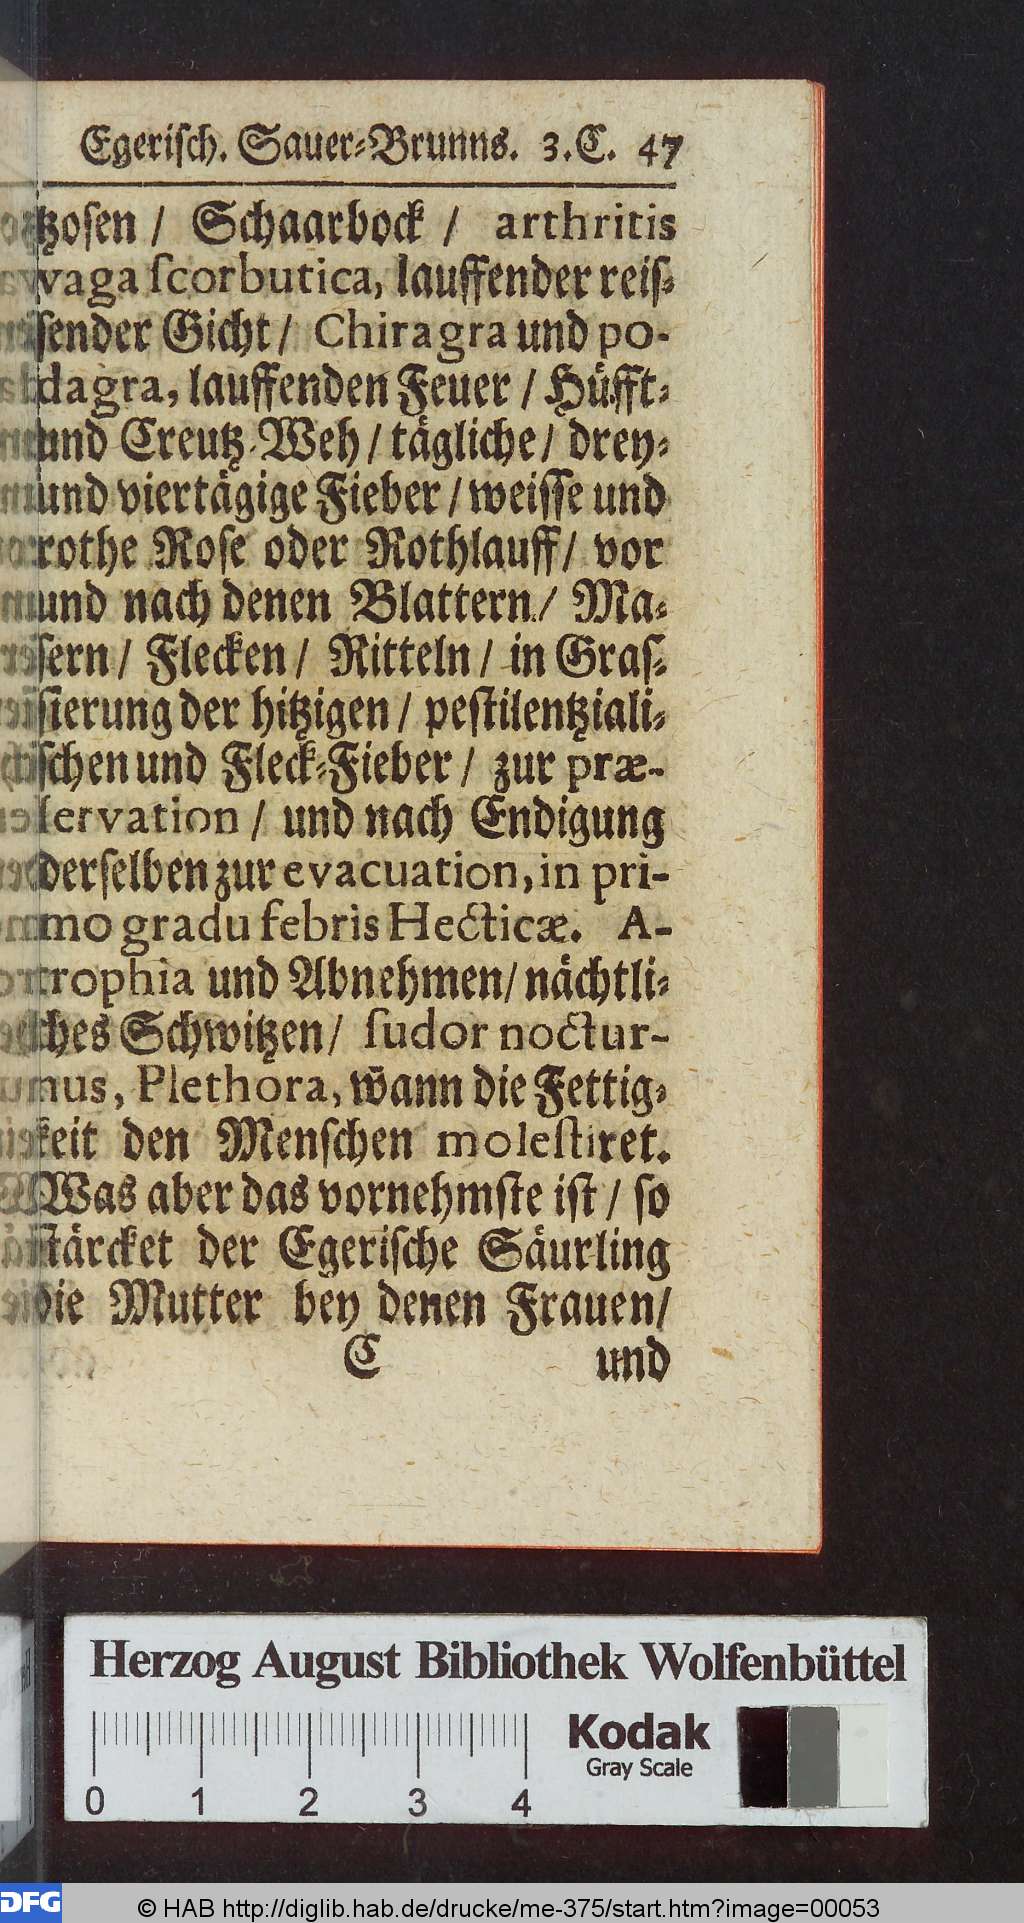 Egeriſch. Sauer-Brunns. 3. C. 47
tzoſen / Schaarbock / arthritis
vaga ſcorbutica, lauffender reiſ-
ſender Gicht / Chiragra und po-
dagra, lauffenden Feuer / Hüfft-
und Creutz-Weh / tägliche / drey-
und viertägige Fieber / weiſſe und
rothe Roſe oder Rothlauff / vor
und nach denen Blattern / Ma-
ſern / Flecken / Ritteln / in Graſ-
ſierung der hitzigen / peſtilentziali-
ſchen und Fleck-Fieber / zur præ-
ſervation / und nach Endigung
derſelben zur evacuation, in pri-
mo gradu febris Hecticæ. A-
trophia und Abnehmen / nächtli-
ches Schwitzen / ſudor noctur-
nus, Plethora, wann die Fettig-
keit den Menſchen moleſtiret.
Was aber das vornehmſte iſt / ſo
ſtärcket der Egeriſche Säurling
die Mutter bey denen Frauen /
C und
Herzog August Bibliothek Wolfenbüttel
Kodak
Gray Scale
0 1 2 3 4
DFG © HAB http://diglib.hab.de/drucke/me-375/start.htm?image=00053